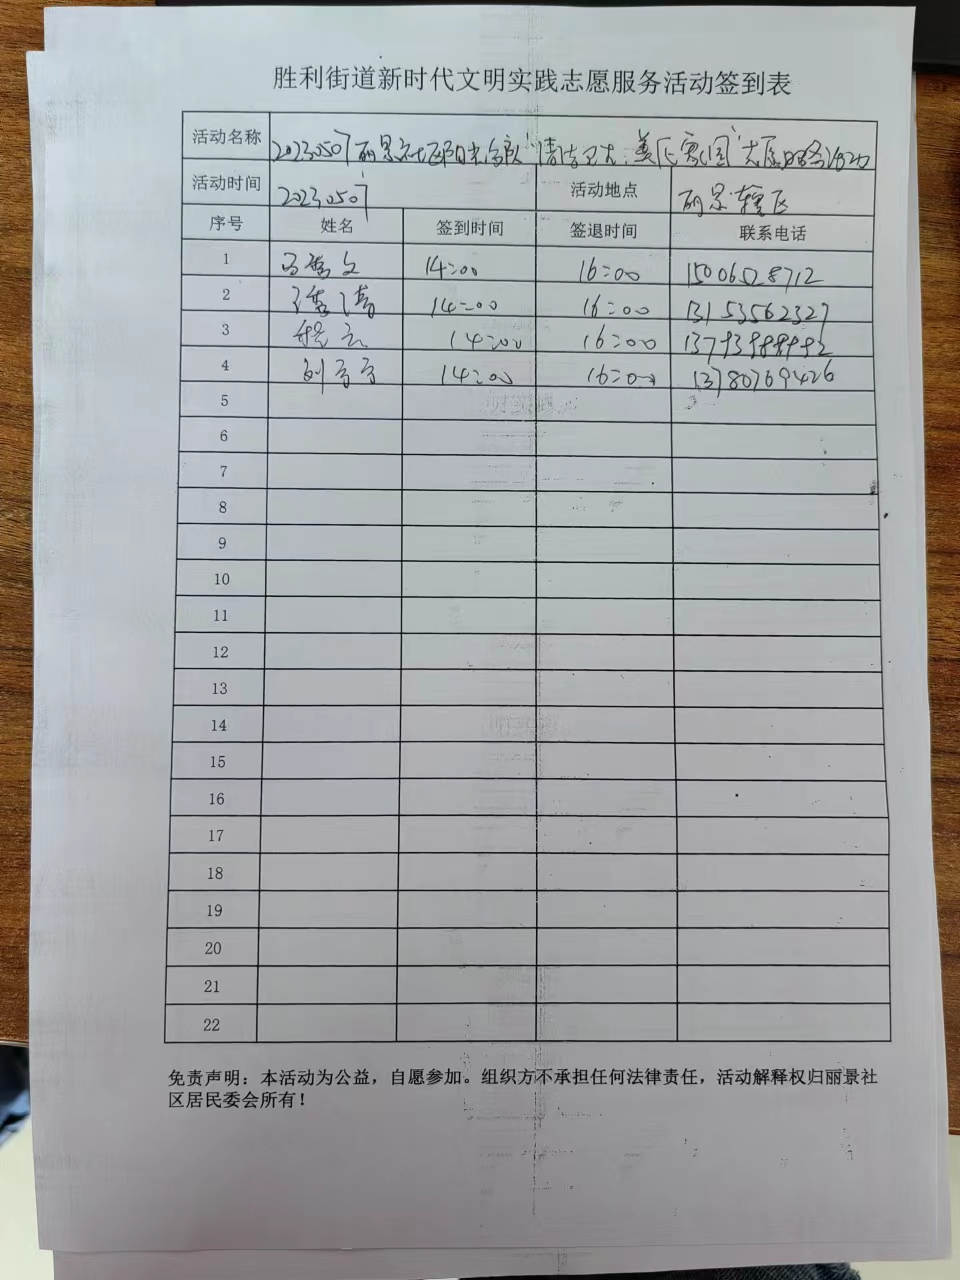 胜利街道新时代文明实践志愿服务活动签到表
活动名称 20230507丽景社区阳光家队"清洁卫大,美化家园"志愿服务活动
活动时间 20230507 活动地点 丽景辖区
序号 姓名 签到时间 签退时间 联系电话
1 文 14:00 16:00 15006528712
2 14:00 16:00 13153562327
3 程 14:00 16:00
4 刘 14:00 16:00 13780769426
5
6
7
8
9
10
11
12
13
14
15
16
17
18
19
20
21
22
免责声明:本活动为公益,自愿参加。组织方不承担任何法律责任,活动解释权归丽景社
区居民委会所有!